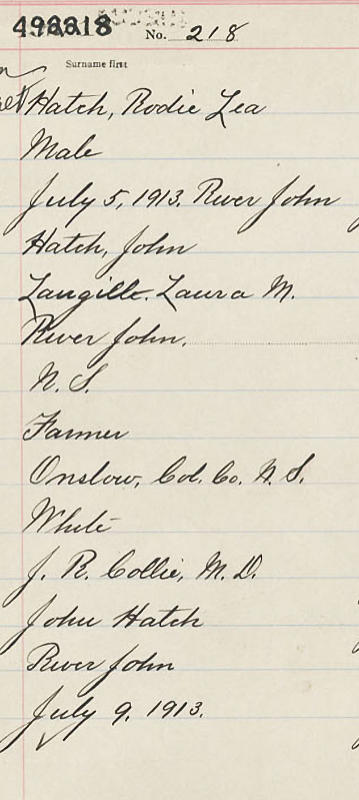 No. 218
Surname first
Hatch, Rodie Lea
Male
July 5, 1913. River John
Hatch, John
Langille. Laura M.
River John.
N. S.
Farmer
Onslow, Col. Co. N. S.
White
J. R. Collie, M. D.
John Hatch
River John
July 9, 1913.